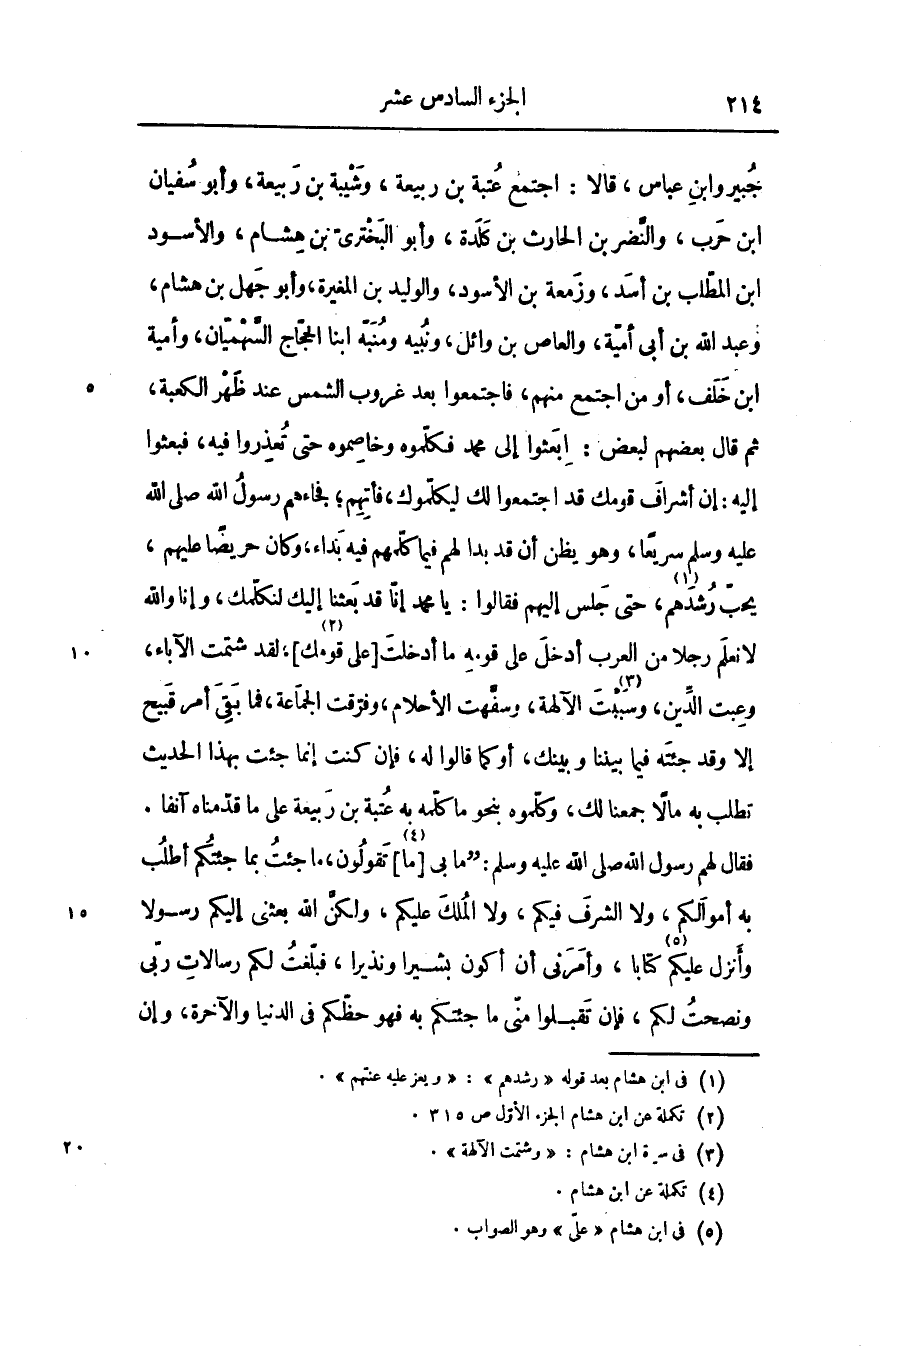 ٢١٤ الجزء السادس عشر
جُبير وابنِ عباس، قالا : اجتمع عُتبة بن ربيعة، وشَيْبة بن رَبيعة، وأبو سُفيان
ابن حَرب، والنَّضر بن الحارث بن كَلَدة، وأبو البَخْترىّ بن هِشام، والأسود
ابن المطّلب بن أسَد، وزَمعة بن الأسود، والوليد بن المغيرة، وأبو جَهل بن هشام،
وعبد الله بن أبى أميّة، والعاص بن وائل، ونُبيه ومُنَبّه ابنا الحجّاج السَّهْميّان، وأمية
ابن خَلَف، أو من اجتمع منهم، فاجتمعوا بعد غروب الشمس عند ظَهْر الكعبة، ٥
ثم قال بعضهم لبعض : اِبعَثوا إلى محمد فكلّموه وخاصِموه حتى تُعذِروا فيه، فبعثوا
إليه : إن أشرافَ قومك قد اجتمعوا لك ليكلّموك، فأتهِم؛ فجاءهم رسولُ الله صلى الله
عليه وسلم سريعًا، وهو يظن أن قد بدا لهم فيما كلّمهم فيه بَداء، وكان حريصًا عليهم،
يحبّ رُشدَهم(١)، حتى جَلس إليهم فقالوا : يا محمد إنّا قد بَعثنا إليك لنكلّمك، وإنا والله
لا نعلَم رجلا من العرب أدخلَ على قومِه ما أدخلتَ [على قومك](٢)، لقد شتمت الآباء، ١٠
وعِبت الدِّين، وسَبَبْتَ(٣) الآلهة، وسفَّهت الأحلام، وفرّقت الجمَاعة، فما بَقِىَ أمر قَبيح
إلا وقد جئتَه فيما بيننا وبينك، أو كما قالوا له، فإن كنت إنما جئت بهذا الحديث
تطلب به مالًا جمعنا لك، وكلّموه بنحو ما كلّمه به عُتبة بن رَبيعة على ما قدّمناه آنفا .
فقال لهم رسول الله صلى الله عليه وسلم : "ما بى [ما](٤) تَقولُون، ما جئتُ بما جئتُكم أطلُب
به أموالَكم، ولا الشرفَ فيكم، ولا المُلكَ عليكم، ولكنَّ الله بعثنى إليكم رسولا ١٥
وأَنزل عليكم(٥) كتابا، وأمَرَنى أن أكون بشيرا ونذيرا، فبلّغتُ لكم رسالاتِ ربّى
ونصحتُ لكم، فإن تَقبلوا منّى ما جئتكم به فهو حظّكم فى الدنيا والآخرة، وإن
(١) فى ابن هشام بعد قوله « رشدهم » : « ويعز عليه عنتهم » .
(٢) تكملة عن ابن هشام الجزء الأوّل ص ٣١٥ .
(٣) فى سيرة ابن هشام : « وشتمت الآلهة » . ٢٠
(٤) تكملة عن ابن هشام .
(٥) فى ابن هشام « علىّ » وهو الصواب .